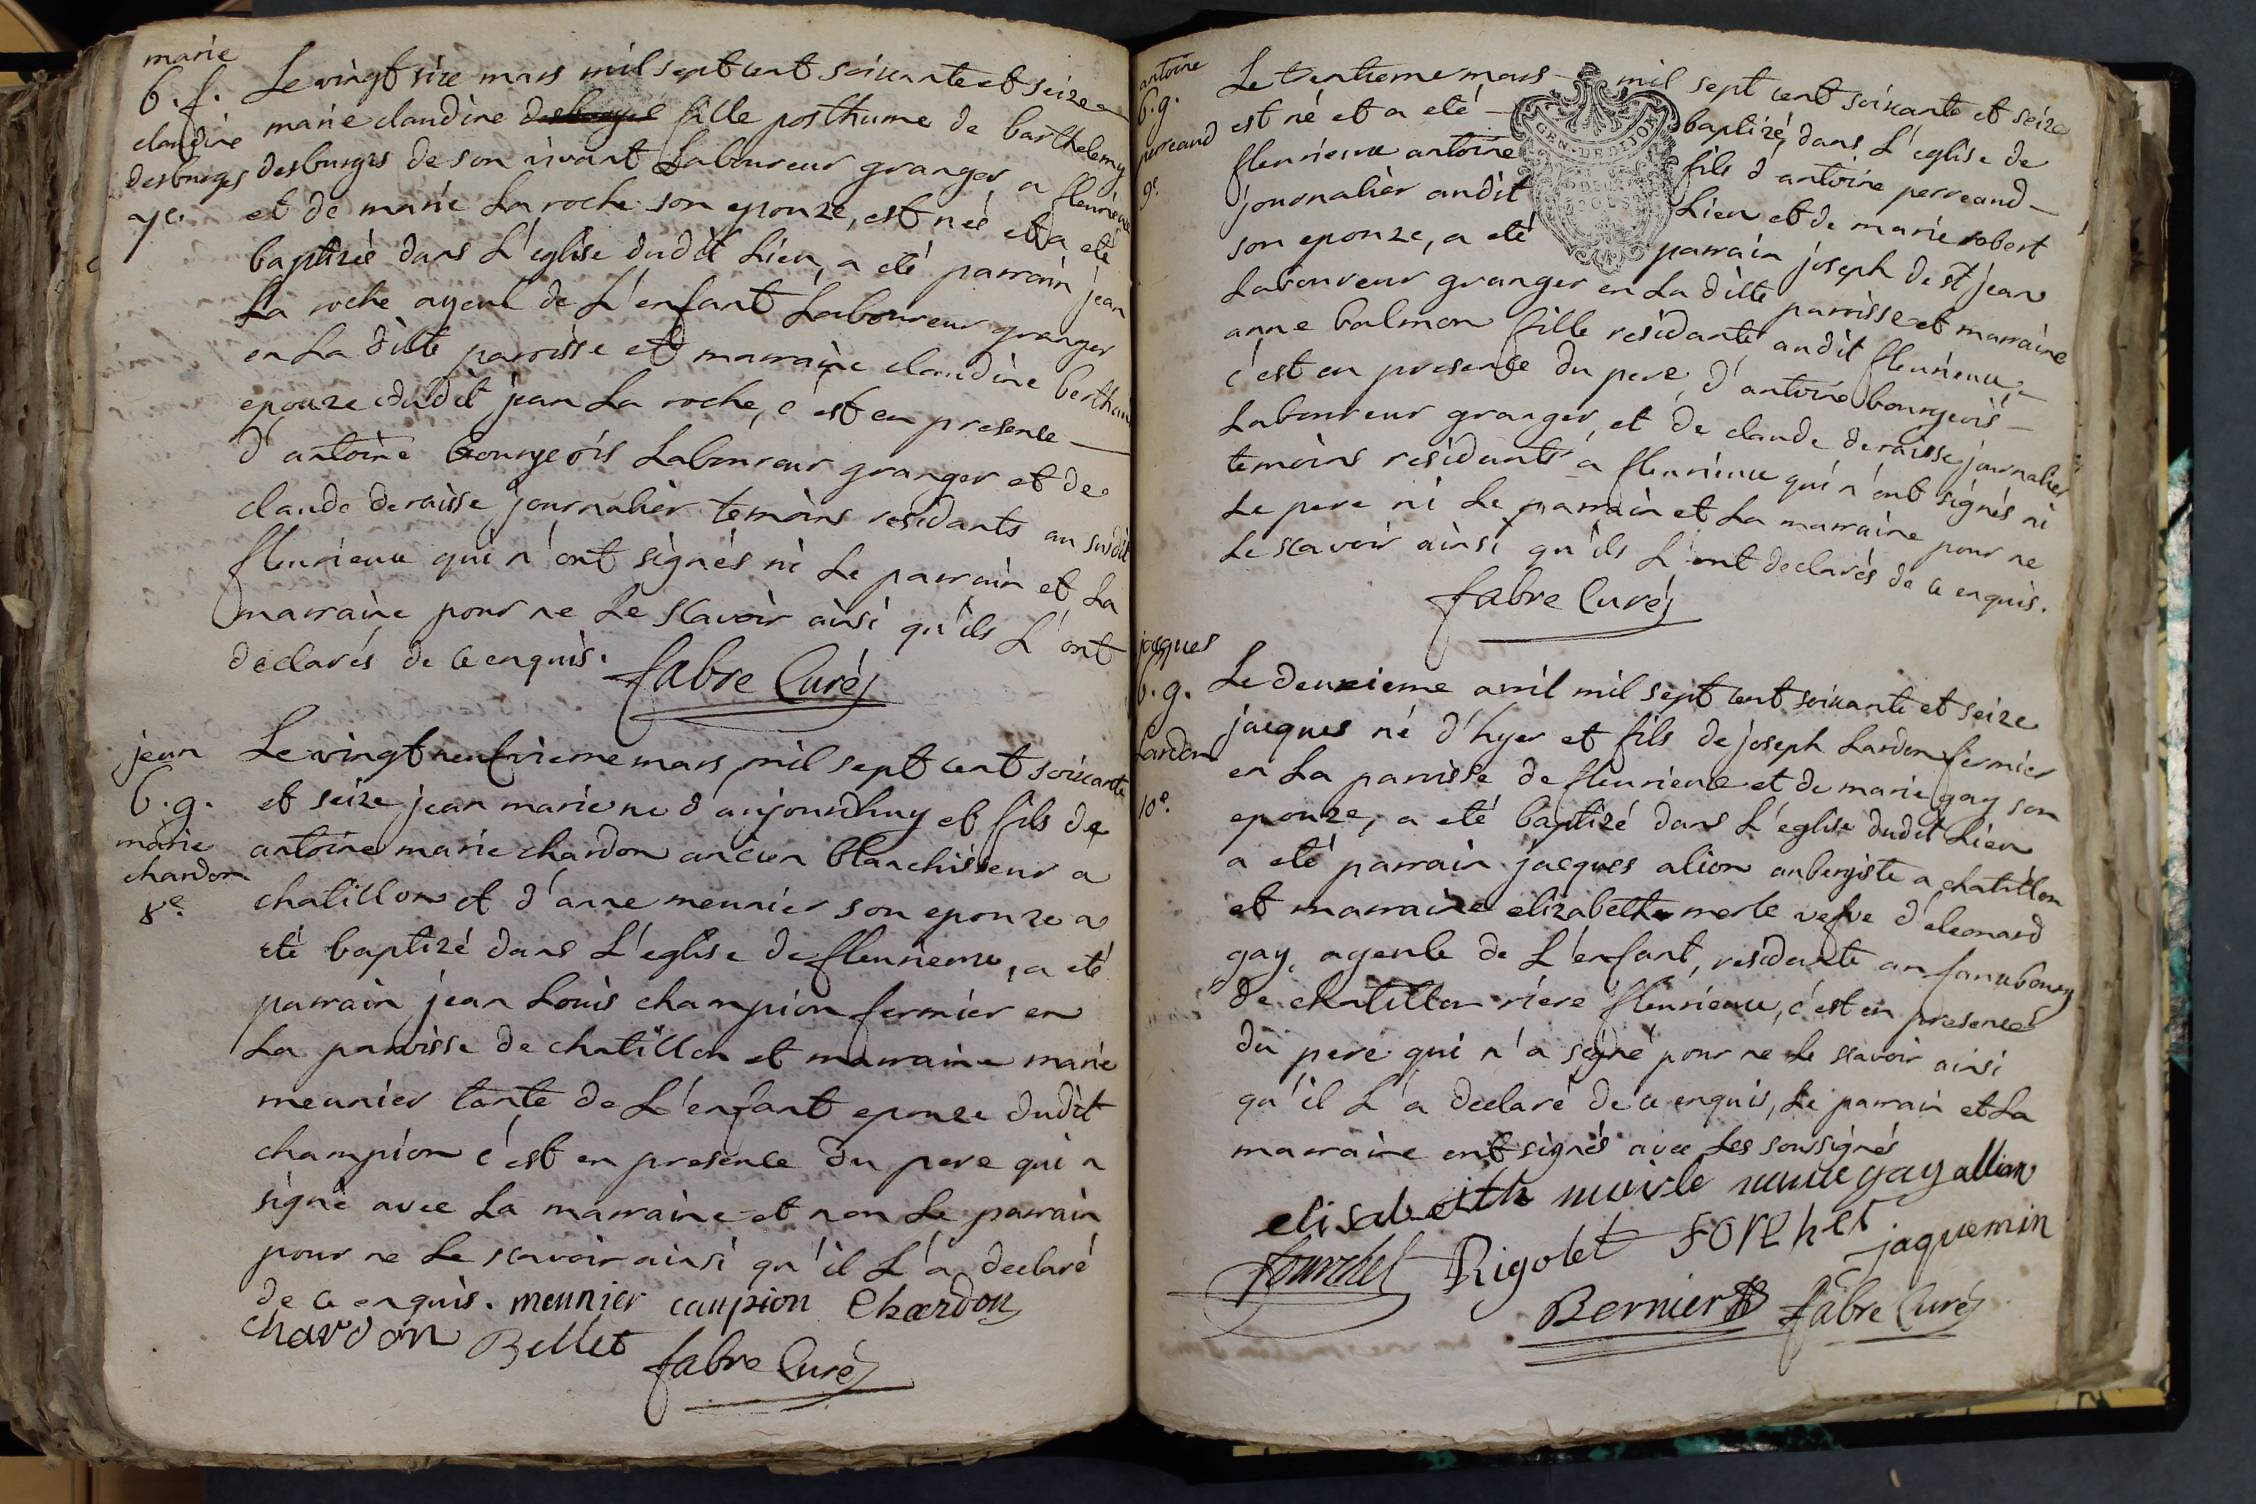 marie
b. f.
claudine
desburges
7e.
Le vingt six mars mil sept cent soixante et seize
marie claudine fille posthume de barthelemy
desburges de son vivant Laboureur granger a fleurieux
et de marie La roche son epouze, est neé et a eté
baptizeé dans L'eglise dudit Lieu, a eté parrain jean
La roche ayeul de L'enfant Laboureur granger
en La ditte parroisse et marraine claudine
epouze dudit jean La roche, c'est en presence
d'antoine bourgeois Laboureur granger et de
claude deraisse journalier temoins residants au susdit
fleurieux qui n'ont signés ni Le parrain et La
marraine pour ne Le scavoir ainsi qu'ils L'ont
declarés de ce enquis.
fabre Curé
jean
b. g.
marie
chardon
8e.
Le vingt neufvieme mars mil sept cent soixante
et seize jean marie né d'aujourdhuy et fils de
antoine marie chardon ancien blanchisseur a
chatillon et d'anne meunier son epouze a
eté baptizé dans L'eglise de fleurieux, a eté
parrain jean Louis champion fermier en
La parroisse de chatillon et marraine marie
meunier tante de L'enfant epouze dudit
champion c'est en presence du pere qui a
signé avec La marraine et non Le parrain
pour ne Le scavoir ainsi qu'il L'a declaré
de ce enquis. meunier caupion Chardon
chardon Bellet
fabre Curé
antoine
b. g.
perreaud
9e.
Le trentieme mars mil sept cent soixante et seize
est né et a eté baptizé, dans L'eglise de
fleurieux antoine fils d'antoine perreaud
journalier audit Lieu et de marie robert
son epouze, a eté parrain joseph de st jean
Laboureur granger en La ditte parroisse et marraine
anne balmon fille residante audit fleurieux,
c'est en presence du pere, d'antoine bourgeois
Laboureur granger, et de claude deraisse journalier
temoins residants a fleurieux qui n'ont signés ni
Le pere ni Le parrain et La marraine pour ne
Le scavoir ainsi qu'ils L'ont declarés de ce enquis.
fabre Curé
jacques
b. g.
Lardon
10e.
Le deuxieme avril mil sept cent soixante et seize
jacques né d'hyer et fils de joseph Lardon fermier
en La parroisse de fleurieux et de marie gay son
epouze, a eté baptizé dans L'eglise dudit Lieu
a eté parrain jacques alion aubergiste a chatillon
et marraine elizabeth merle vefve d'eleonard
gay, ayeule de L'enfant, residante au fauxbourg
de chatillon riere fleurieux, c'est en presence
du pere qui n'a signé pour ne Le scavoir ainsi
qu'il L'a declaré de ce enquis, Le parrain et La
marraine ont signés avec Les soussignés
elisabeith meirle veuve gay allion
fourchet Rigolet forchet jaquemin
Bernier fabre Curé
GEN. DE DIJON